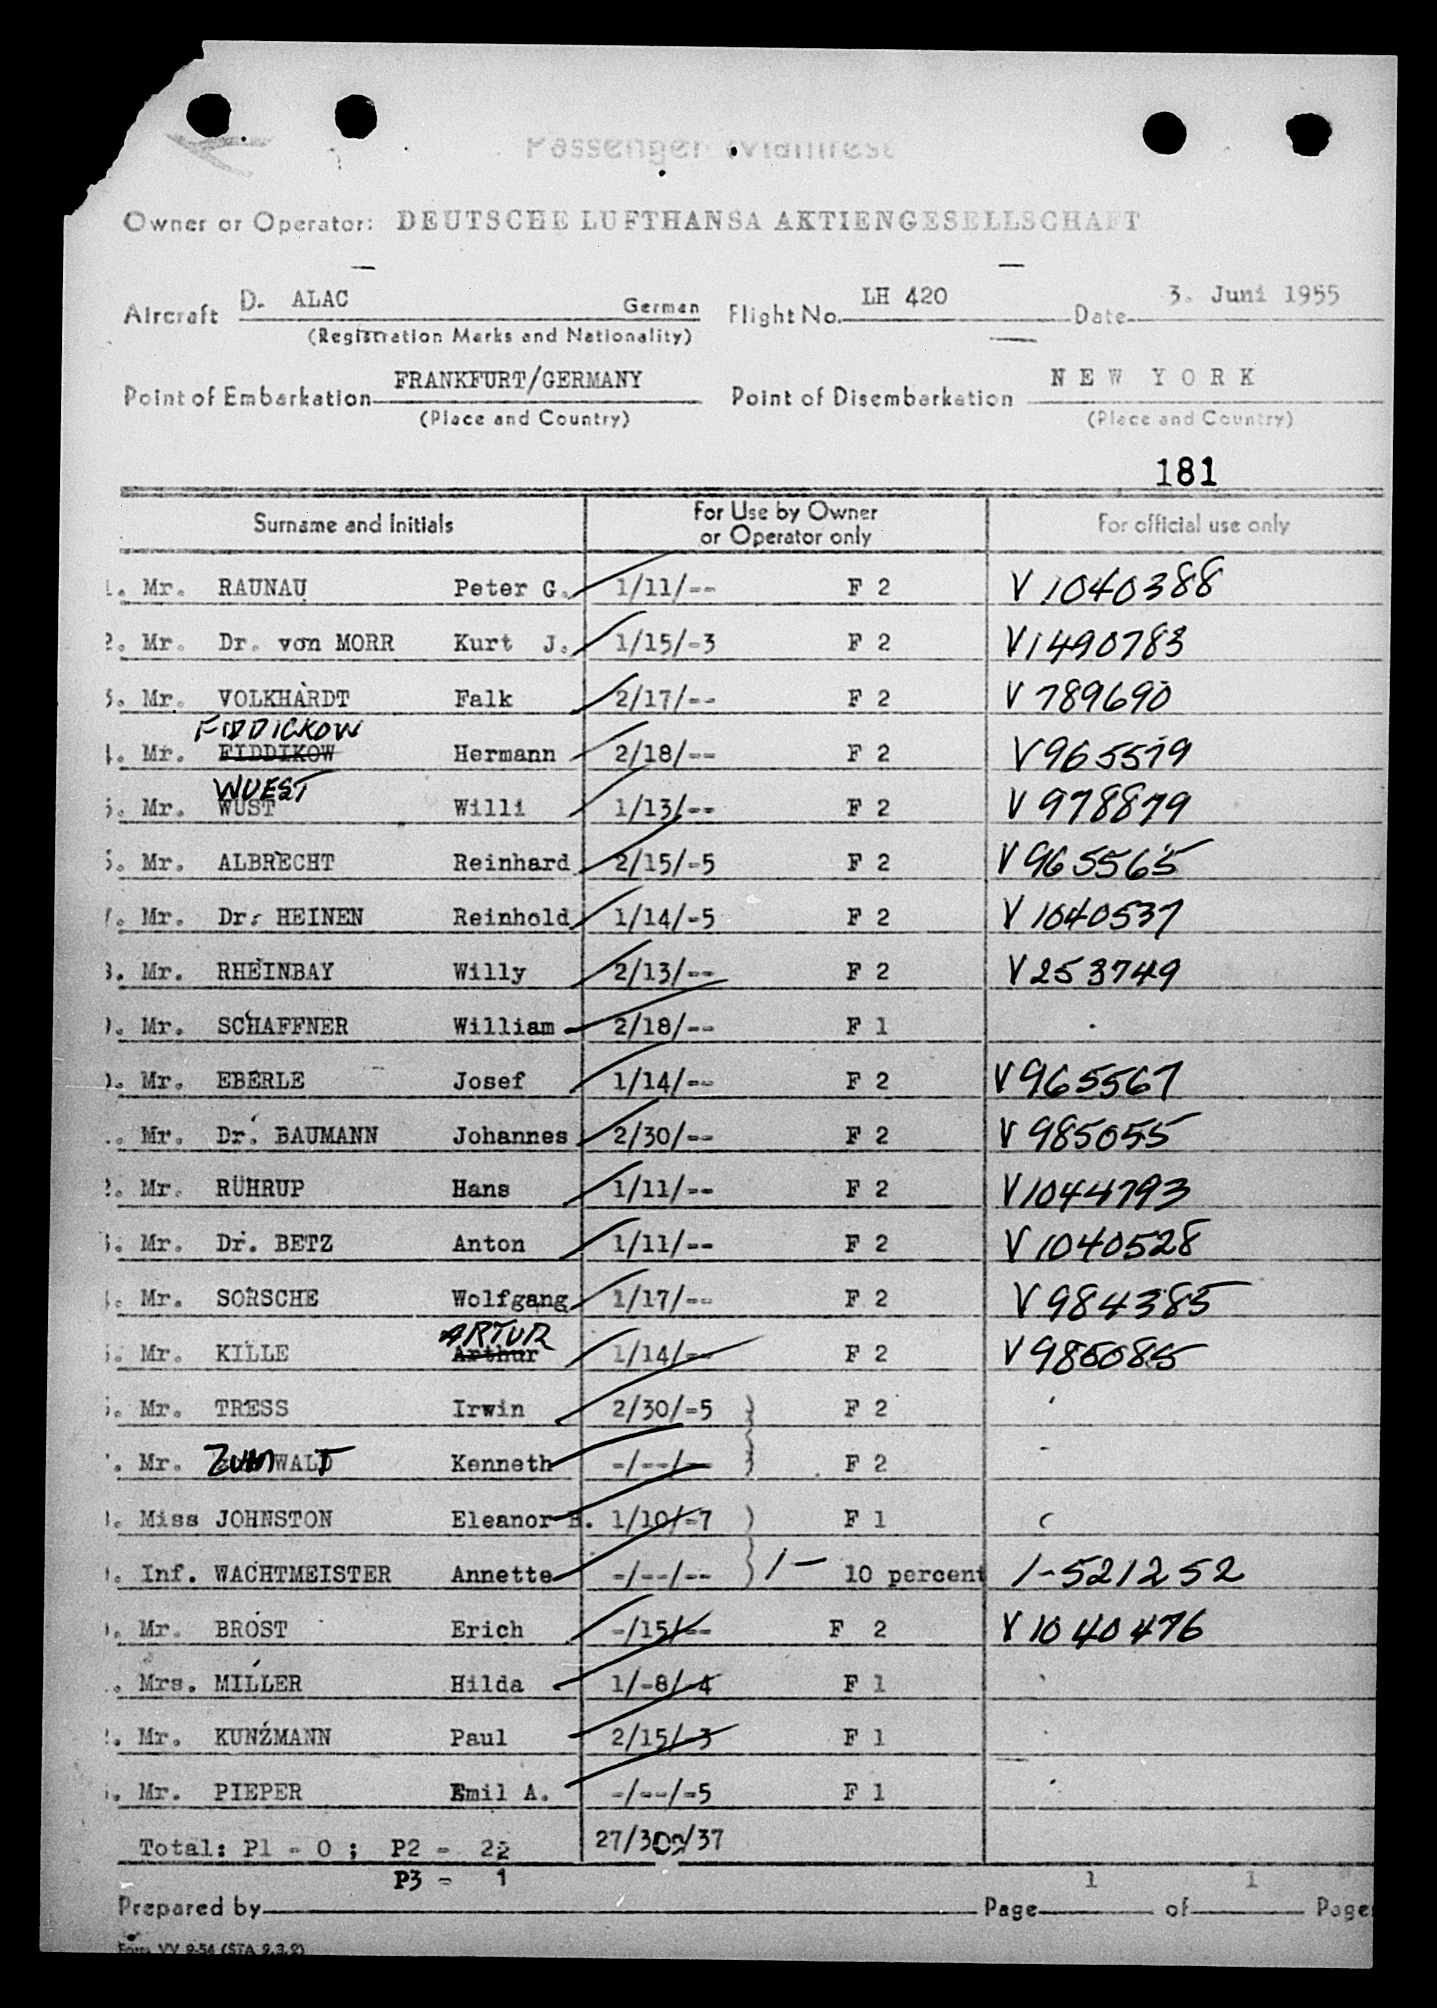 Passenger Manifest
Owner or Operator: DEUTSCHE LUFTHANSA AKTIENGESELLSCHAFT
Aircraft D. ALAC German Flight No. LH 420 Date 3. Juni 1955
(Registration Marks and Nationality)
Point of Embarkation FRANKFURT/GERMANY Point of Disembarkation NEW YORK
(Place and Country) (Place and Country)
181
Surname and Initials For Use by Owner or Operator only For official use only
1. Mr. RAUNAU Peter G. 1/11/-- F 2 V 1040388
2. Mr. Dr. von MORR Kurt J. 1/15/-3 F 2 V1490783
3. Mr. VOLKHARDT Falk 2/17/-- F 2 V 789690
FIDDICKOW
4. Mr. FIDDIKOW Hermann 2/18/-- F 2 V965579
WUEST
5. Mr. WUST Willi 1/13/-- F 2 V 978879
6. Mr. ALBRECHT Reinhard 2/15/-5 F 2 V965565
7. Mr. Dr. HEINEN Reinhold 1/14/-5 F 2 V 1040537
8. Mr. RHEINBAY Willy 2/13/-- F 2 V253749
9. Mr. SCHAFFNER William 2/18/-- F 1
0. Mr. EBERLE Josef 1/14/-- F 2 V965567
. Mr. Dr. BAUMANN Johannes 2/30/-- F 2 V 985055
2. Mr. RÜHRUP Hans 1/11/-- F 2 V1044793
3. Mr. Dr. BETZ Anton 1/11/-- F 2 V 1040528
4. Mr. SORSCHE Wolfgang 1/17/-- F 2 V984385
ARTUR
5. Mr. KILLE Arthur 1/14/-- F 2 V985085
6. Mr. TRESS Irwin 2/30/-5 F 2
. Mr. ZUMWALT Kenneth -/--/-- F 2
8. Miss JOHNSTON Eleanor B. 1/10/-7 F 1
9. Inf. WACHTMEISTER Annette -/--/-- 1- 10 percent 1-521252
0. Mr. BROST Erich -/15/-- F 2 V 1040476
. Mrs. MILLER Hilda 1/-8/-4 F 1
2. Mr. KUNZMANN Paul 2/15/-3 F 1
3. Mr. PIEPER Emil A. -/--/-5 F 1
Total: P1 - 0 ; P2 - 22 27/309/37
P3 - 1
Prepared by Page 1 of 1 Page
Form VV 9-54 (STA 9.3.9)